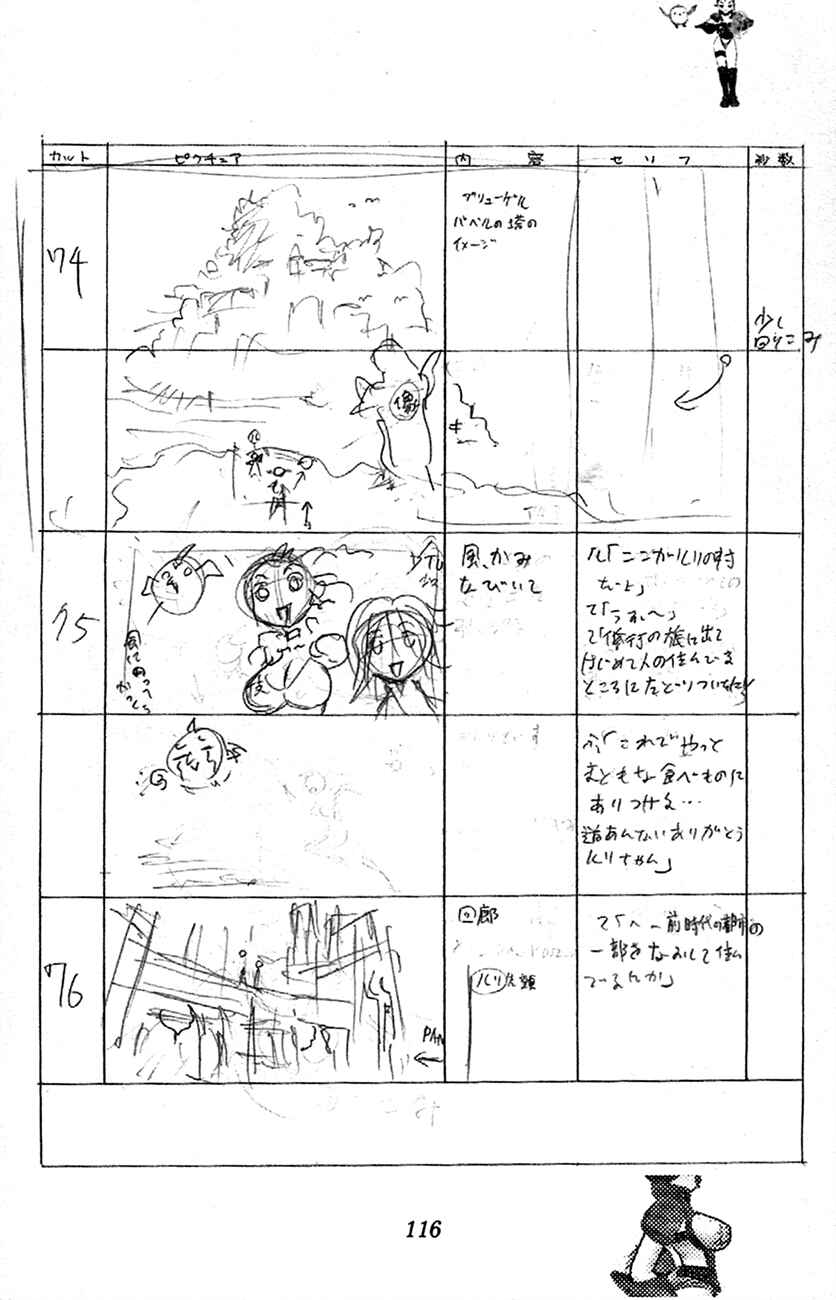 カット ピクチュア 内容 セリフ 秒数
74
ブリューゲル
バベルの塔の
イメージ
少し
回りこみ
像
75
風、かみ
なびいて
ル「ここがルリの村
だよ」
て「うわ〜」
て「修行の旅に出て
はじめて人の住んでる
ところにたどりついたよ」
ふ「これでやっと
まともな食べものに
ありつける…
道あんないありがとう
ルリちゃん」
76
回廊
ルリ先頭
PAN
て「へ〜前時代の都市の
一部をなおして住ん
でいるんか」
116